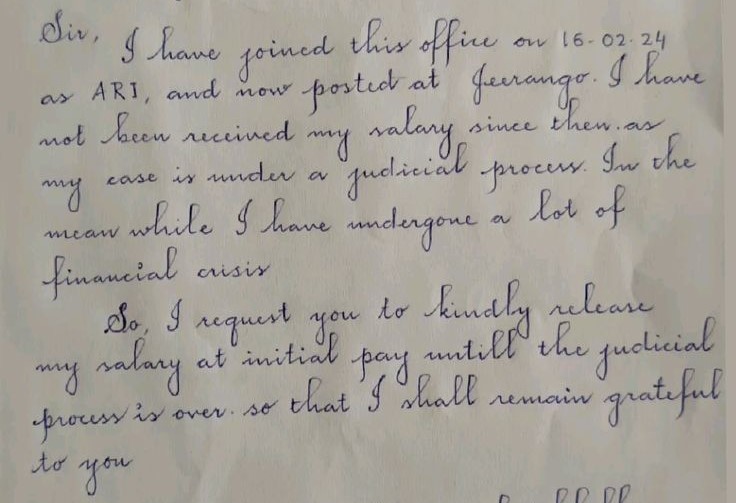 Sir,
I have joined this office on 16-02-24
as ARI, and now posted at Jeerango. I have
not been received my salary since then. as
my case is under a judicial process. In the
mean while I have undergone a lot of
financial crisis
So, I request you to kindly release
my salary at initial pay untill the judicial
process is over. so that I shall remain grateful
to you